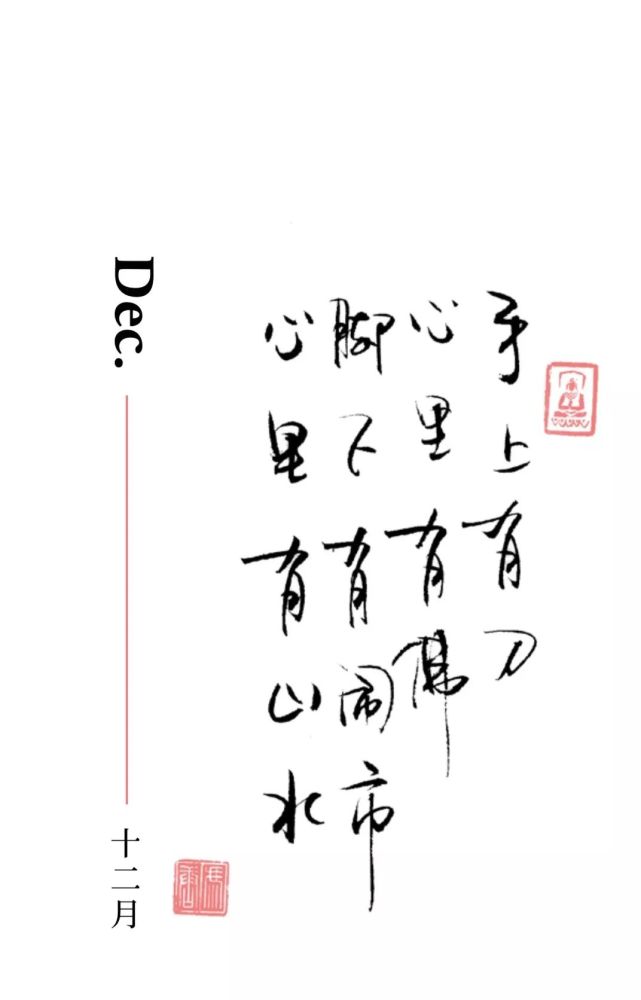 手上有刀
心里有佛
脚下有闹市
心里有山水
Dec.
十二月